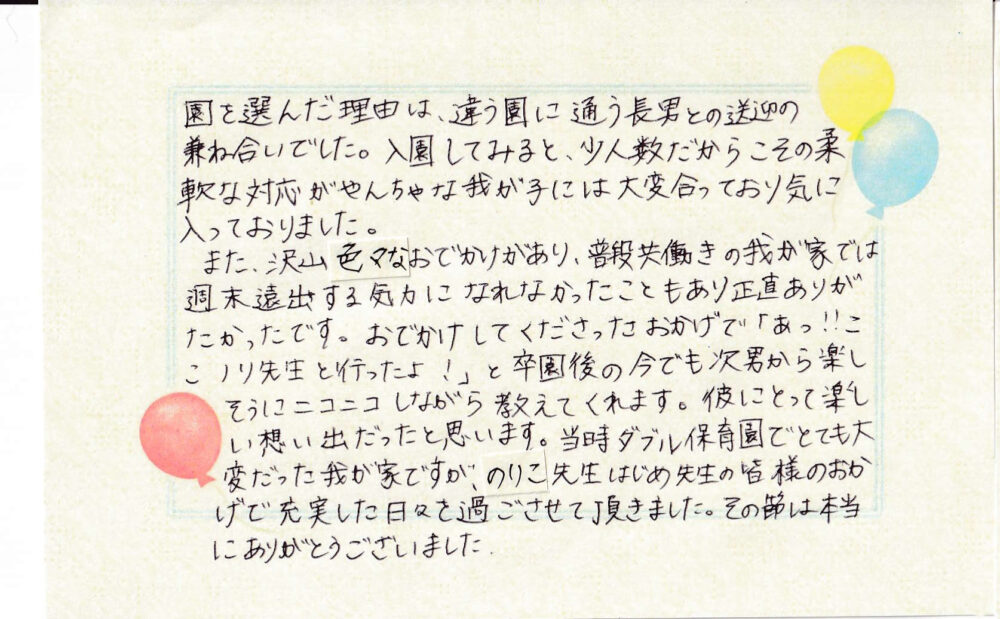 園を選んだ理由は、違う園に通う長男との送迎の
兼ね合いでした。入園してみると、少人数だからこその柔
軟な対応がやんちゃな我が子には大変合っており気に
入っておりました。
また、沢山色々なおでかけがあり、普段共働きの我が家では
週末遠出する気力になれなかったこともあり正直ありが
たかったです。おでかけしてくださったおかげで「あっ!!こ
こノリ先生と行ったよ!」と卒園後の今でも次男から楽し
そうにニコニコしながら教えてくれます。彼にとって楽し
い想い出だったと思います。当時ダブル保育園でとても大
変だった我が家ですが、のりこ先生はじめ先生の皆様のおか
げで充実した日々を過ごさせて頂きました。その節は本当
にありがとうございました.